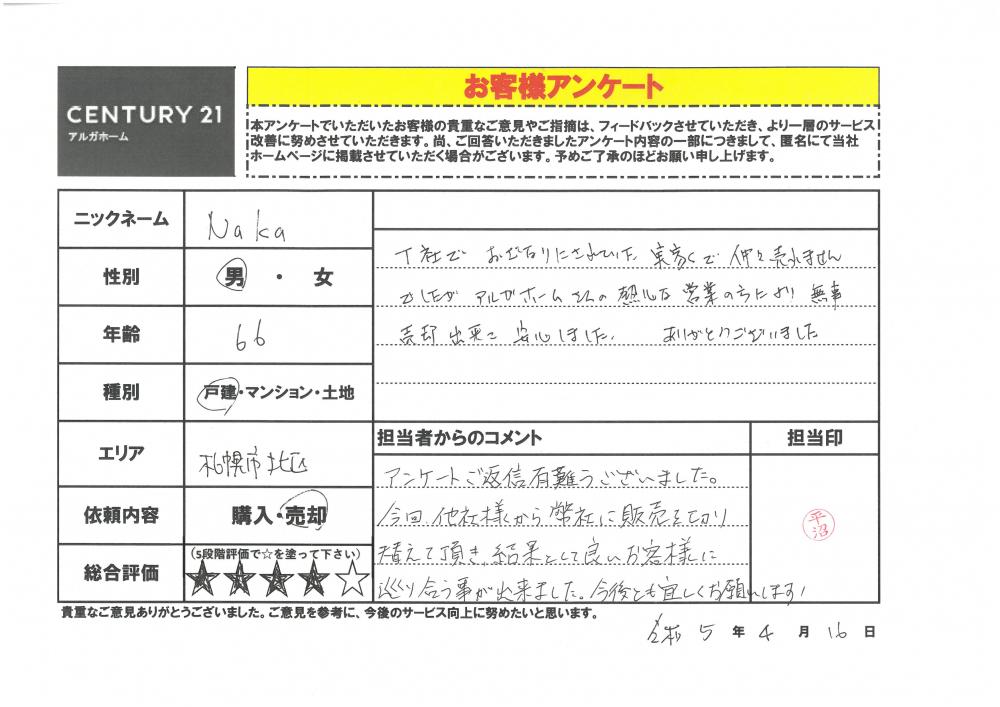 CENTURY 21
アルガホーム
お客様アンケート
本アンケートでいただいたお客様の貴重なご意見やご指摘は、フィードバックさせていただき、より一層のサービス
改善に努めさせていただきます。尚、ご回答いただきましたアンケート内容の一部につきまして、匿名にて当社
ホームページに掲載させていただく場合がございます。予めご了承のほどお願い申し上げます。
ニックネーム
Naka
性別
男・女
年齢
66
種別
戸建・マンション・土地
エリア
札幌市北区
依頼内容
購入・売却
総合評価
(5段階評価で☆を塗って下さい)
★★★★☆
社で おざなりにされていた 売れません
でしたが アルガホームさんの 熱心な 営業の方により 無事
売却 出来て 安心しました。 ありがとうございました
担当者からのコメント
担当印
アンケートご返信有難うございました。
今回、他社様から弊社に販売を切り
替えて頂き、結果として良いお客様に
巡り合う事が出来ました。今後とも宜しくお願いします!
平沼
貴重なご意見ありがとうございました。ご意見を参考に、今後のサービス向上に努めたいと思います。
令和 5 年 4 月 16 日